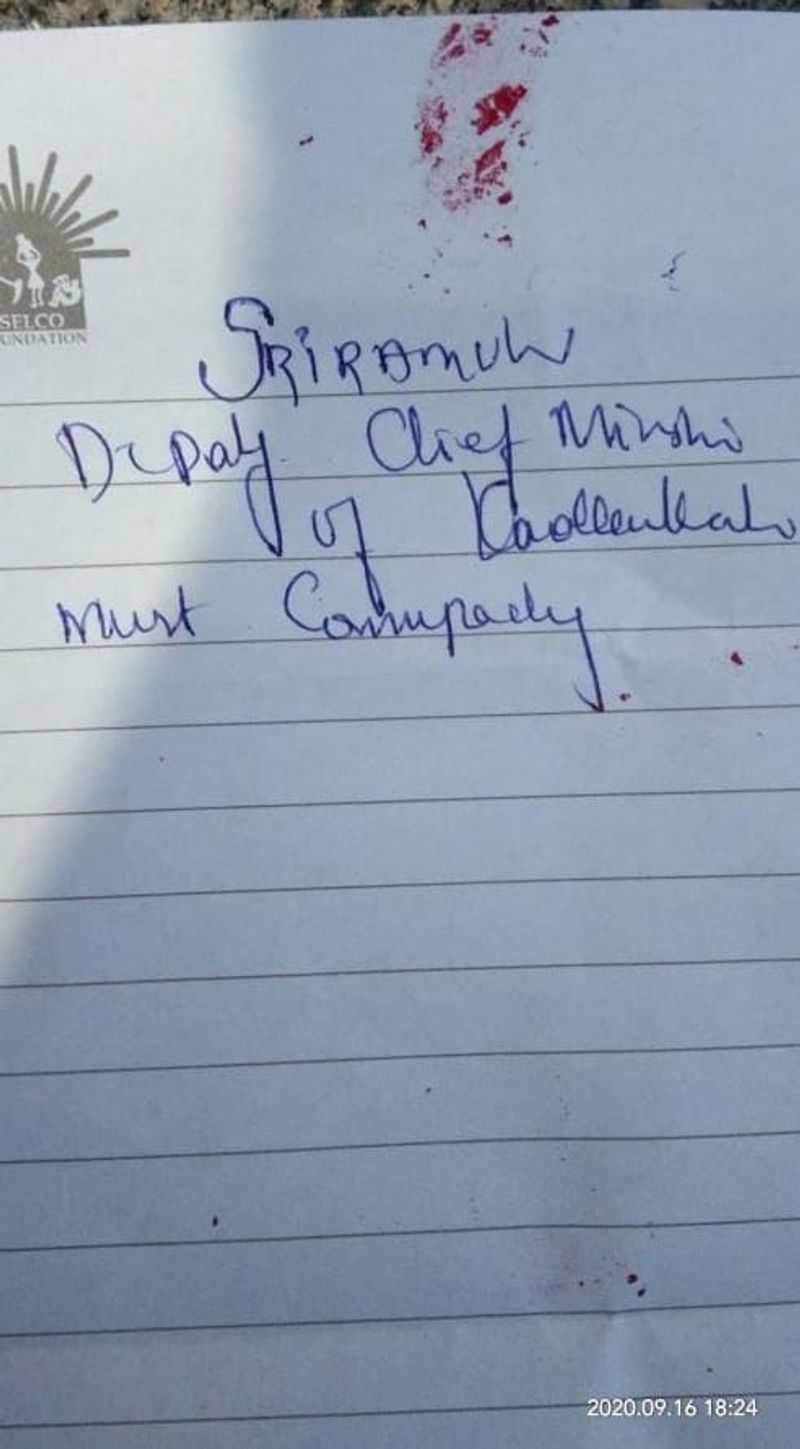 SELCO
UNDATION
SRIRAMULU
Deputy Chief Minister
of
must
2020.09.16 18:24